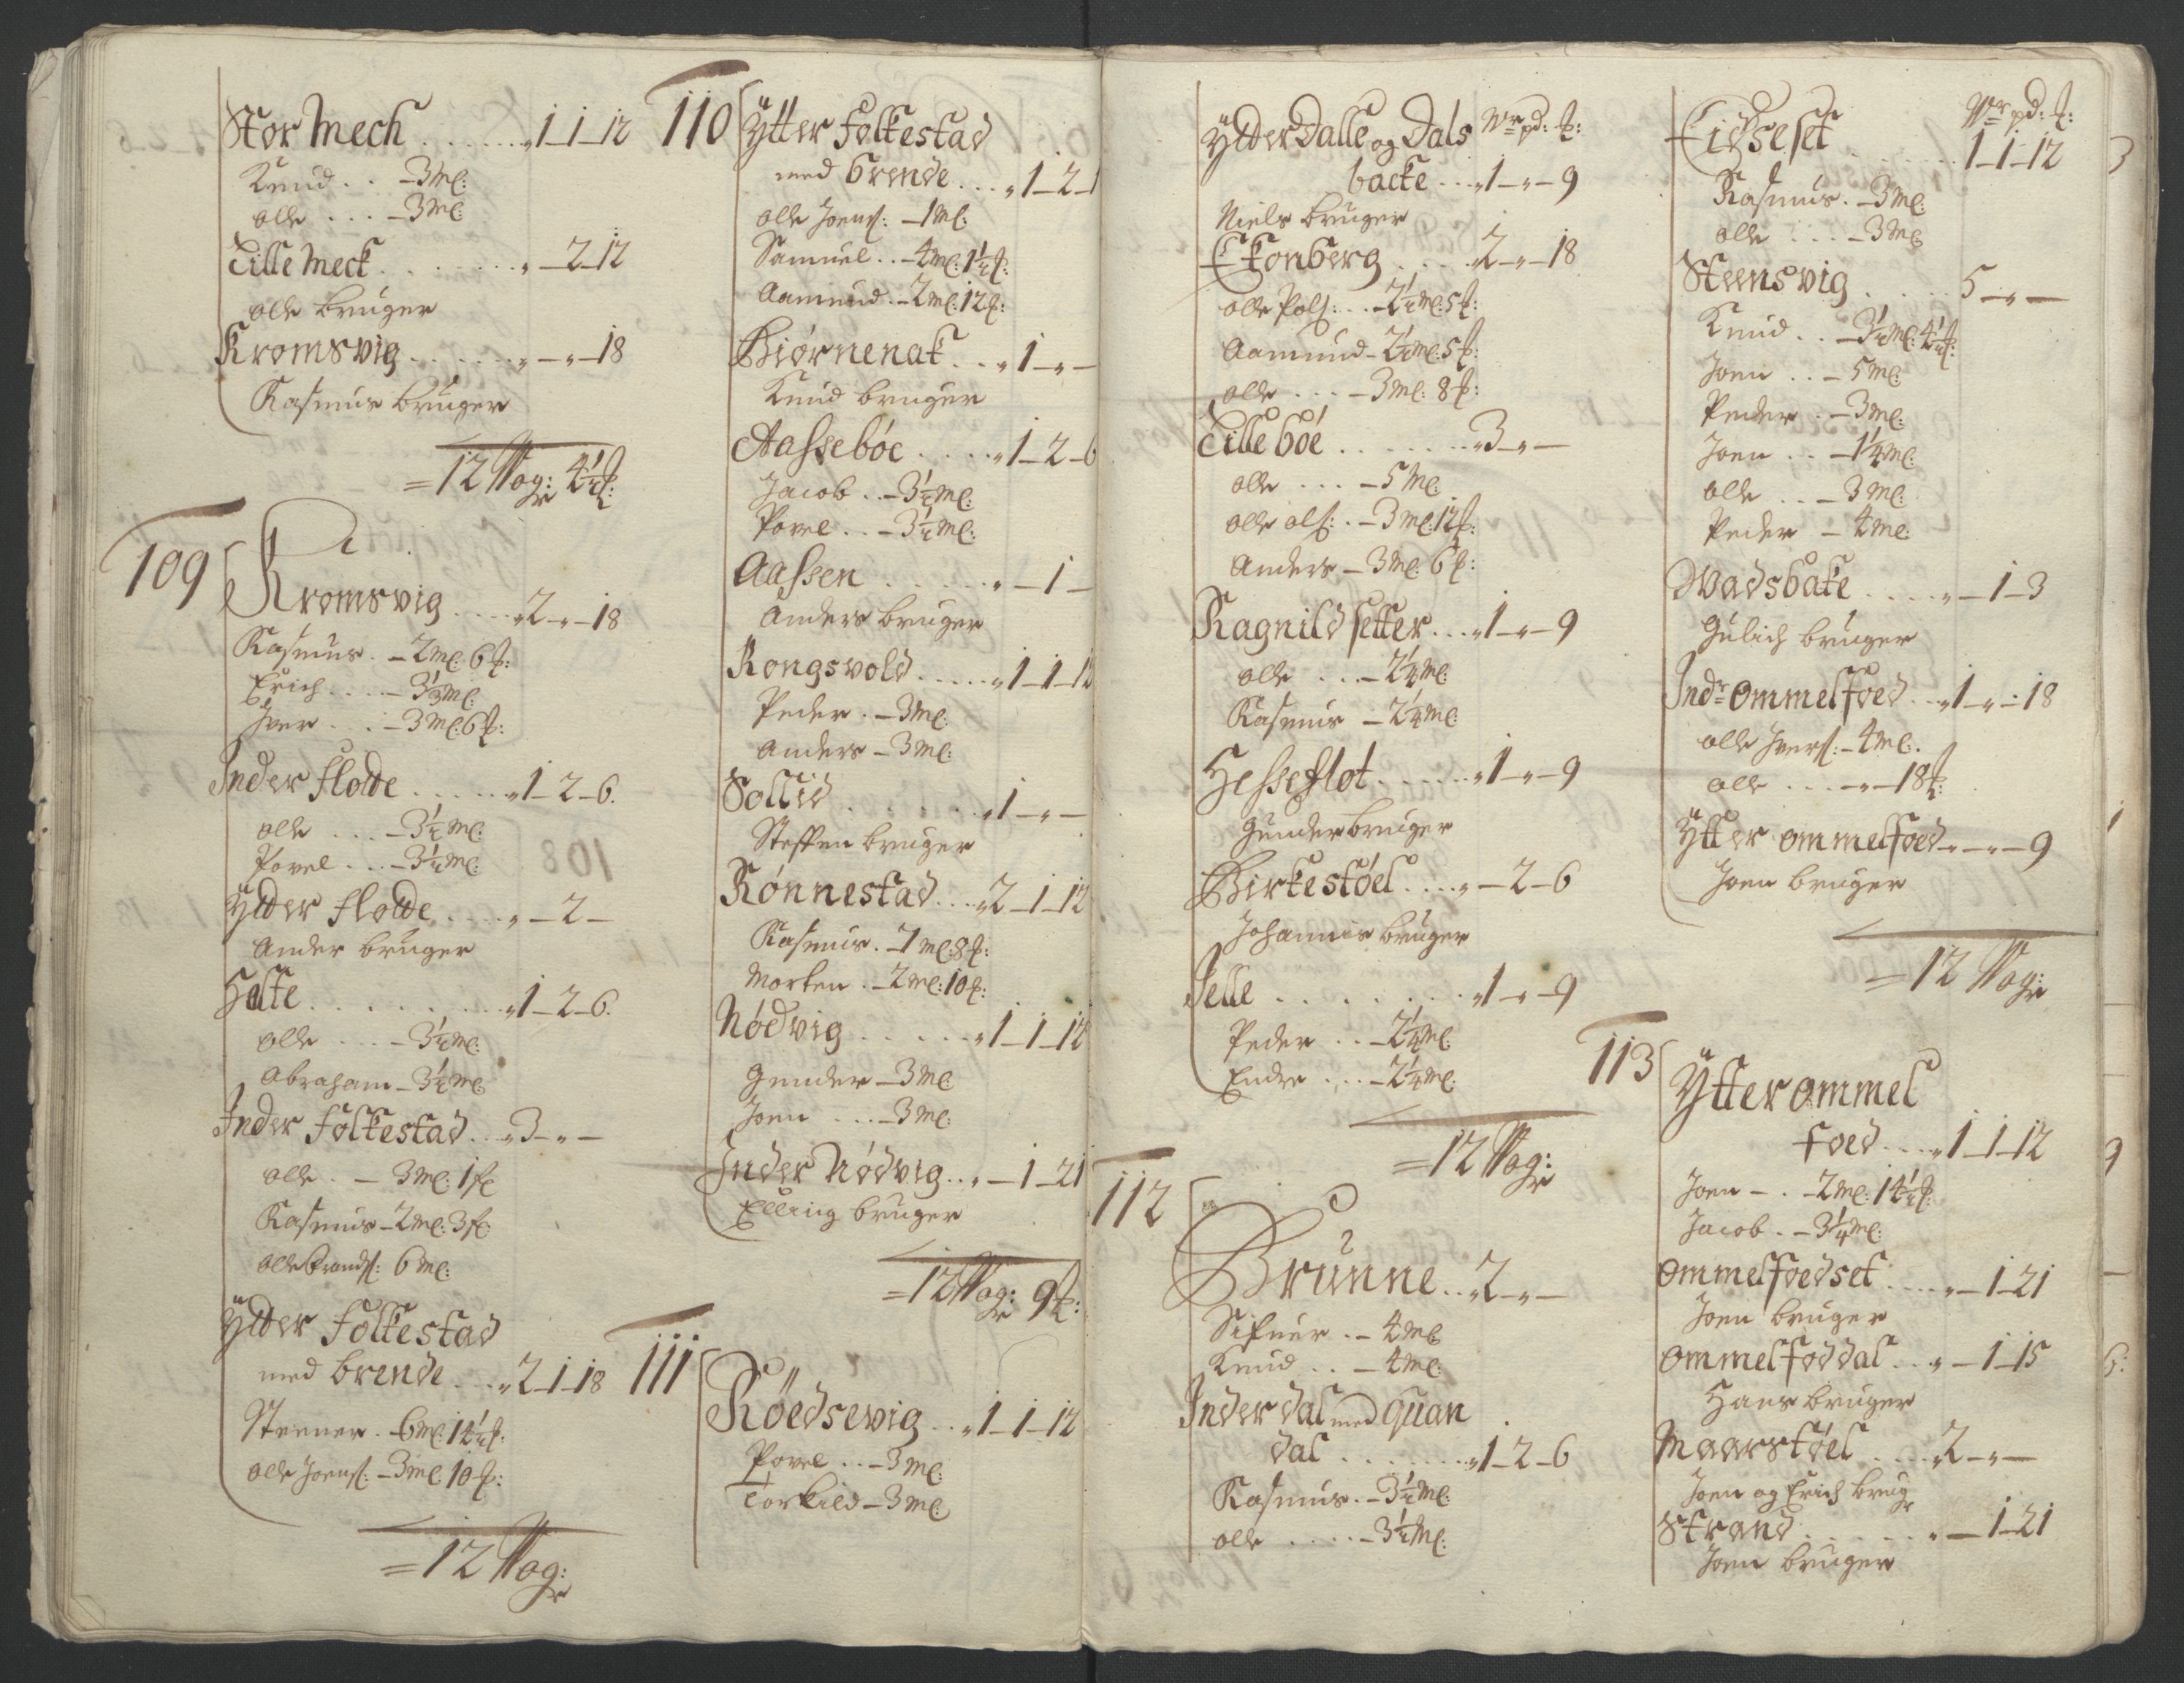 Stor Mech . . . . . . „1–1–12
Knud . . – 3 ml:
olle . . . – 3 ml:
Lille Meck . . . . . . . „ – 2–12
olle bruger
Kromsvig . . . . . . „ – „ – 18
Rasmus bruger
= 12 Wog: 4½ ℔:
109
Kromsvig . . . . „2 – „ – 18
Rasmus . – 2 ml: 6 ℔:
Erich . . . . – 3⅓ ml:
Iver . . . – 3 ml: 6 ℔:
Inder flotte . . . . . „1–2–6.
olle . . . – 3½ ml:
Povel . . . – 3½ ml:
Ÿtter flotte . . . . „ – 2 –
Ander bruger
Holte . . . . . . . . . „1–2–6.
olle . . . – 3½ ml:
Abraham – 3½ ml:
Inder folkestad . . „3 – „ –
olle . – 3 ml: 1 ℔
Rasmus – 2 ml: 3 ℔
olle brands: 6 ml:
Ÿtter folkestad
med brende . . „2–1–18
Steener . – 6 ml: 14½ ℔:
olle Joens: – 3 ml: 10 ℔:
= 12 Wog:
110
Ÿtter folkestad
med brende . . . „1–2–1
olle Joens: – 1 ml:
Samuel . . – 4 ml: 1½ ℔:
Aamund . – 2 ml: 12 ℔:
Biørnenak . . „1 – „ –
Knud bruger
Aassebóe . . . . „1–2–6
Jacob . . – 3½ ml:
Povel . . – 3½ ml:
Aassen . . . . . . „ – 1 –
Anders bruger
Rongsvold . . . . . „1–1–12
Peder . – 3 ml:
Anders – 3 ml:
Sollid . . . . . . . „1 – „ –
Steffen bruger
Rónnestad . . . „2–1–12
Rasmus . – 7 ml: 8 ℔:
Morten . – 2 ml: 10 ℔:
Nódvig . . . . . . „1–1–12
Gunder – 3 ml:
Joen . . . – 3 ml:
Inder Nódvig . . „ – 1–21
Elling bruger
= 12 Wog: 9 ℔:
111
Róedsevig . . „1–1–12
Povel . . – 3 ml:
Torkild – 3 ml:
Ÿtter Dalle og Dals Wr pd: ℔:
backe . . . „1 – „ – 9
Niels bruger
Ekonberg . . . „2 – „ – 18
olle Pols: . . . – 2½ ml: 5 ℔:
Aamund – 2½ ml: 5 ℔:
olle . . . – 3 ml: 8 ℔:
Lille bóe . . . . . . . „3 – „ –
olle . . . – 5 ml:
olle ols: . – 3 ml: 12 ℔:
Anders – 3 ml: 6 ℔:
Ragnild setter . . . „1 – „ – 9
olle . . . – 2¼ ml:
Rasmus – 2¼ ml:
Hesseflot . . . . . „1 – „ – 9
Gunder bruger
Birkestóel . . . . „ – 2–6
Johannis bruger
Selle . . . . . . . . „1 – „ – 9
Peder . . – 2¼ ml:
Endre . . . – 2¼ ml:
= 12 Wog:
112
Brunne . . „2 – „ –
Sifuer . – 4 ml:
Knud . . – 4 ml:
Inder dal med quan
dal . . . . . . . „1–2–6
Rasmus . – 3½ ml:
olle . . . . – 3½ ml:
Wr pd: ℔:
Eidseset . . . . . 1–1–12
Rasmus . – 3 ml:
olle . . . – 3 ml:
Steensvig . . . . . 5 – „ –
Knud . . – 3½ ml: 4½ ℔:
Joen . . – 5 ml:
Peder . – 3 ml:
Joen . . – 1¼ ml:
olle . . – 3 ml:
Peder – 4 ml:
Wadsbake . . . . „ – 1–3
Gulich bruger
Indr ommelfoed . . „1 – „ – 18
olle Ivers: – 4 ml:
olle . . . – „ – 18 ℔:
Ÿtter ommelfoed – „ – „ – 9
Joen bruger
= 12 Wog:
113
Ÿtter ommel
foed . . . „1–1–12
Joen – . – 2 ml: 14½ ℔:
Jacob . – 3¼ ml:
ommelfoedset . . . . „ – 1–21
Joen bruger
ommelfoddal . . . „ – 1–15
Hans bruger
Maarstóel . . . . „2 – „ –
Joen og Erich brugr
Strand . . . . . . . „ – 1–21
Joen bruger